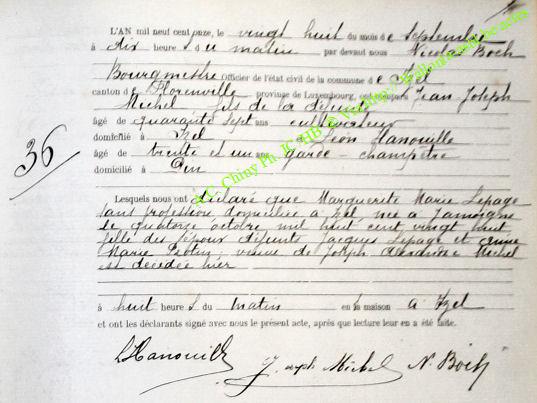 L'AN mil neuf cent onze, le vingt huit du mois de Septembre
à dix heures du matin par devant nous Nicolas Boch
Bourgmestre Officier de l'état civil de la commune d'Izel
canton de Florenville province de Luxembourg, ont comparu Jean Joseph
Michel, fils de la défunte
âgé de quarante sept ans cultivateur
domicilié à Izel Léon Hanouille
âgé de trente et un ans garde-champêtre
domicilié à Pin
36
Lesquels nous ont déclaré que Marguerite Marie Lepage
sans profession domiciliée à Izel, née à Jamoigne
le quatorze octobre mil huit cent vingt huit
fille des époux défunts Jacques Lepage et
Marie veuve de Joseph Michel
est décédée hier
à huit heures du matin en la maison à Izel
et ont les déclarants signé avec nous le présent acte, après que lecture leur en a été faite.
LHanouille Joseph Michel N. Boch